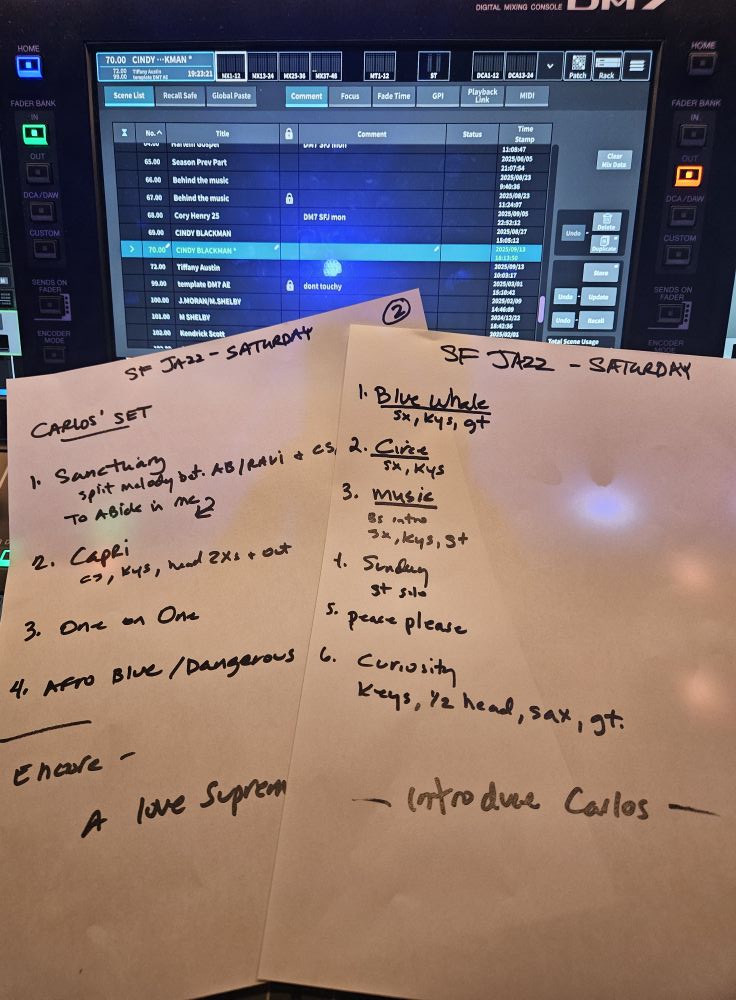 DIGITAL MIXING CONSOLE DM7
HOME
FADER BANK
IN
OUT
DCA/DAW
CUSTOM
SENDS ON FADER
ENCODER MODE
70.00 CINDY ···KMAN *
72.00 Tiffany Austin
99.00 template DM7 AE 19:23:21
MX1-12 MX13-24 MX25-36 MX37-48 MT1-12 ST DCA1-12 DCA13-24
Patch Rack
Scene List Recall Safe Global Paste Comment Focus Fade Time GPI Playback Link MIDI
No. Title Comment Status Time Stamp
64.00 Harlem Gospel DM7 SFJ mon 11:08:47
65.00 Season Prev Part 2025/06/05 21:07:54
66.00 Behind the music 2025/08/23 9:40:36
67.00 Behind the music 2025/08/23 11:24:07
68.00 Cory Henry 25 DM7 SFJ mon 2025/09/05 22:52:12
69.00 CINDY BLACKMAN 2025/08/27 15:05:12
70.00 CINDY BLACKMAN * 2025/09/13 18:13:50
72.00 Tiffany Austin 2025/09/13 10:03:17
99.00 template DM7 AE dont touchy 2025/03/01 15:10:42
100.00 J.MORAN/M.SHELBY 2025/02/09 14:46:09
101.00 M SHELBY 2024/12/22 18:42:36
102.00 Kendrick Scott 2025/02/01
Clear Mix Data
Undo Delete
Duplicate
Store
Undo Update
Undo Recall
Total Scene Usage
HOME
FADER BANK
IN
OUT
DCA/DAW
CUSTOM
SENDS ON FADER
ENCODER MODE
2
SF JAZZ - SATURDAY
CARLOS' SET
1. Sanctuary
split melody bet. AB/RAVi + CS,
To ABide in me
2. Capri
CS, Keys, head 2xs + out
3. One on One
4. AFro Blue / Dangerous
Encore -
A love Suprem
SF JAZZ - SATURDAY
1. Blue Whale
sx, Kys, gt
2. Circe
sx, Kys
3. Music
Bs intro
sx, Kys, gt
4. Sunday
gt solo
5. peace please
6. Curiosity
Keys, 1/2 head, sax, gt.
— Introduce Carlos —